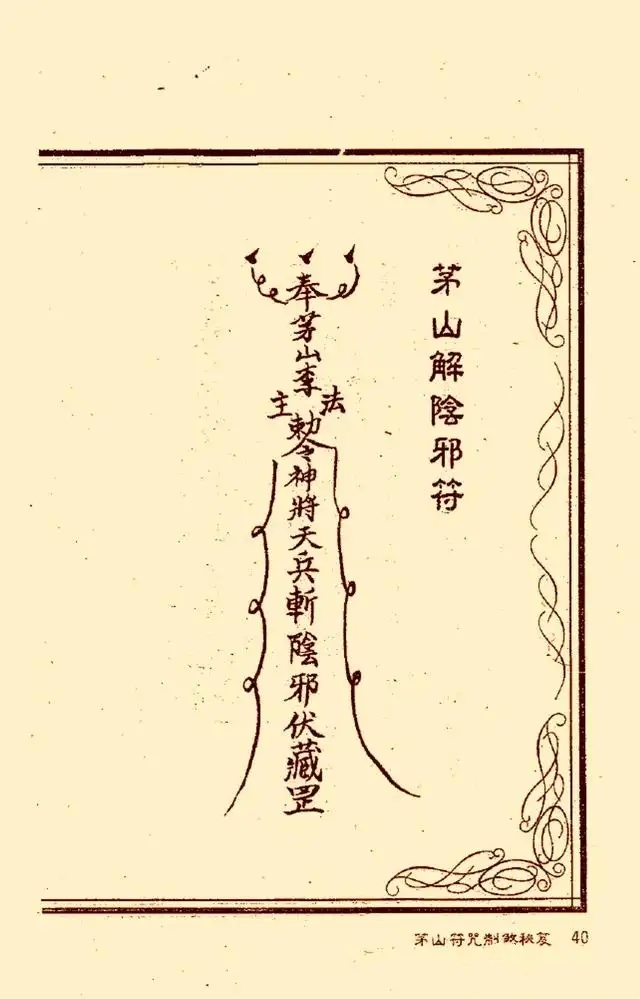 茅山解陰邪符
奉茅山李
法主
勅令神將天兵斬陰邪伏藏罡
茅山符咒制煞秘笈 40